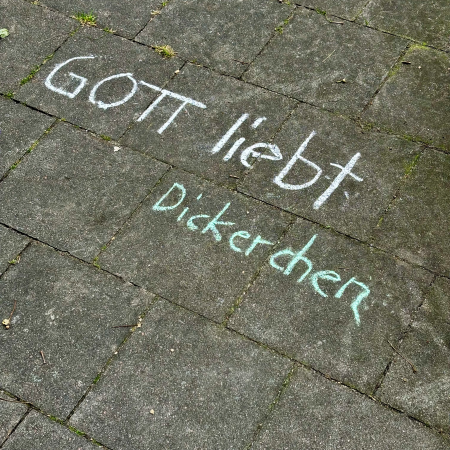 GOTT liebt
Dickerchen